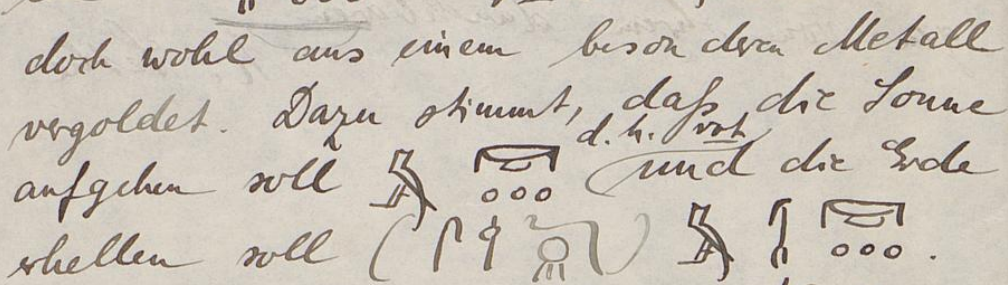 doch wohl aus einem besonderen Metall
vergoldet. Dazu stimmt, daß die Sonne
d. h. rot
aufgehen soll und die Erde
erhellen soll ( ) .